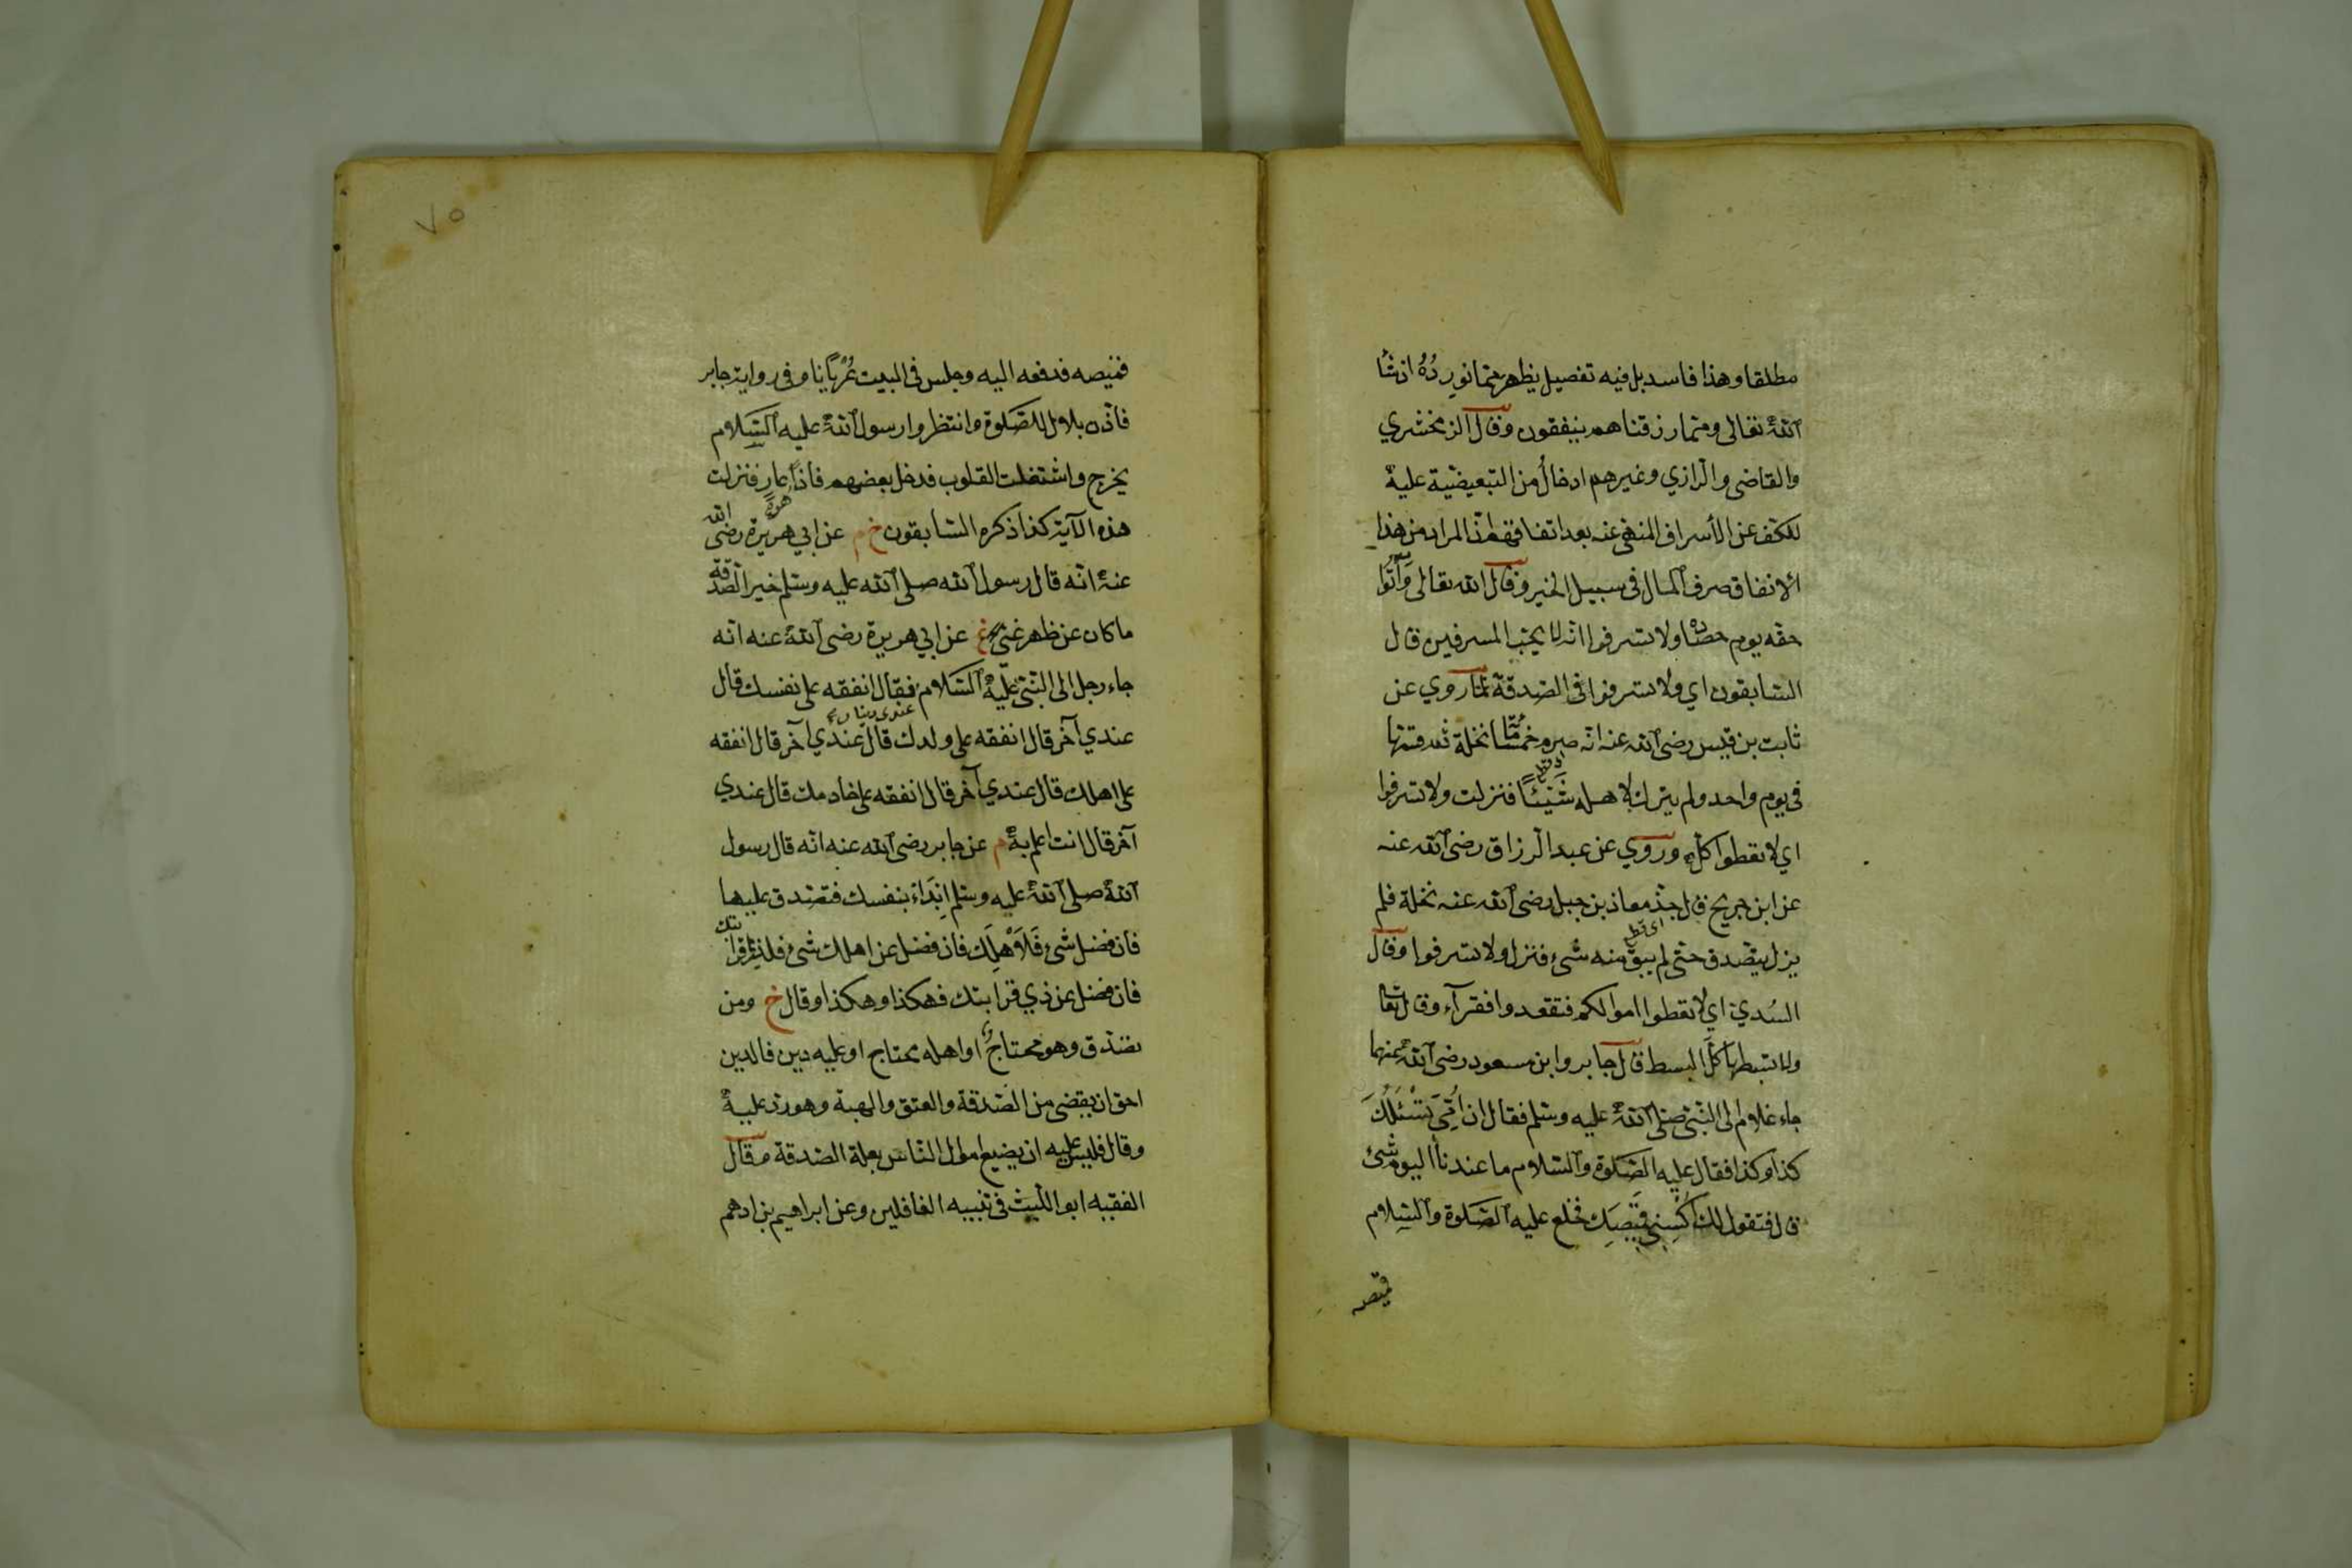 مطلقا وهذا فاسد بل فيه تفصيل يظهر مما نورده ان شاء
الله تعالى ومما رزقناهم ينفقون وقال الزمخشري
والقاضي والرازي وغيرهم ادخال من التبعيضية عليه
للكف عن الأسراف المنهى عنه بعد اتفاقهم ان المراد من هذا
الانفاق صرف المال فى سبيل الخير وقال الله تعالى وآتوا
حقه يوم حصاده ولا تسرفوا انه لا يحب المسرفين قال
السابقون اي ولا تسرفوا فى الصدقة لما روي عن
ثابت بن قيس رضى الله عنه انه صرم خمسمائة نخلة ثم قسمها
فى يوم واحد ولم يترك لاهله شيئا فنزلت ولا تسرفوا
اي لا تعطوا كله وروي عن عبد الرزاق رضى الله عنه
عن ابن جريج قال جذ معاذ بن جبل رضى الله عنه نخلة فلم
اى قطع
يزل يتصدق حتى لم يبق منه شىء فنزل ولا تسرفوا وقال
السدي اي لا تعطوا اموالكم فتقعدوا فقرآء وقال تعالى
ولا تبسطها كل البسط قال جابر وابن مسعود رضى الله عنهما
جاء غلام الى النبى صلى الله عليه وسلم فقال ان امى تسئلك
كذا وكذا فقال عليه الصلوة والسلام ما عندنا اليوم شئ
قال فتقول لك اكسنى قميصك فخلع عليه الصلوة والسلام
قميصه
٧٥
قميصه فدفعه اليه وجلس فى البيت عريانا وفى رواية جابر
فأذن بلال للصلوة وانتظروا رسول الله عليه السلام
يخرج واشتغلت القلوب فدخل بعضهم فأذا هو عار فنزلت
هذه الآية كذا ذكره السابقون خ م عن ابي هريرة رضى الله
عنه انه قال رسول الله صلى الله عليه وسلم خير الصدقة
ما كان عن ظهر غنى غ عن ابي هريرة رضى الله عنه انه
جاء رجل الى النبى عليه السلام فقال انفقه على نفسك قال
عندى دينار
عندي آخر قال انفقه على ولدك قال عندي آخر قال انفقه
على اهلك قال عندي آخر قال انفقه على خادمك قال عندي
آخر قال انت اعلم به م عن جابر رضى الله عنه انه قال رسول
الله صلى الله عليه وسلم ابداء بنفسك فتصدق عليها
فان فضل شىء فلاهلك فان فضل عن اهلك شىء فلذى قرابتك
فان فضل عن ذي قرابتك فهكذا وهكذا وقال خ ومن
تصدق وهو محتاج او اهله محتاج او عليه دين فالدين
احق ان يقضى من الصدقة والعتق والهبة وهو رد عليه
وقال فليس عليه ان يضيع اموال الناس بعلة الصدقة قال
الفقيه ابو الليث فى تنبيه الغافلين وعن ابراهيم بن ادهم